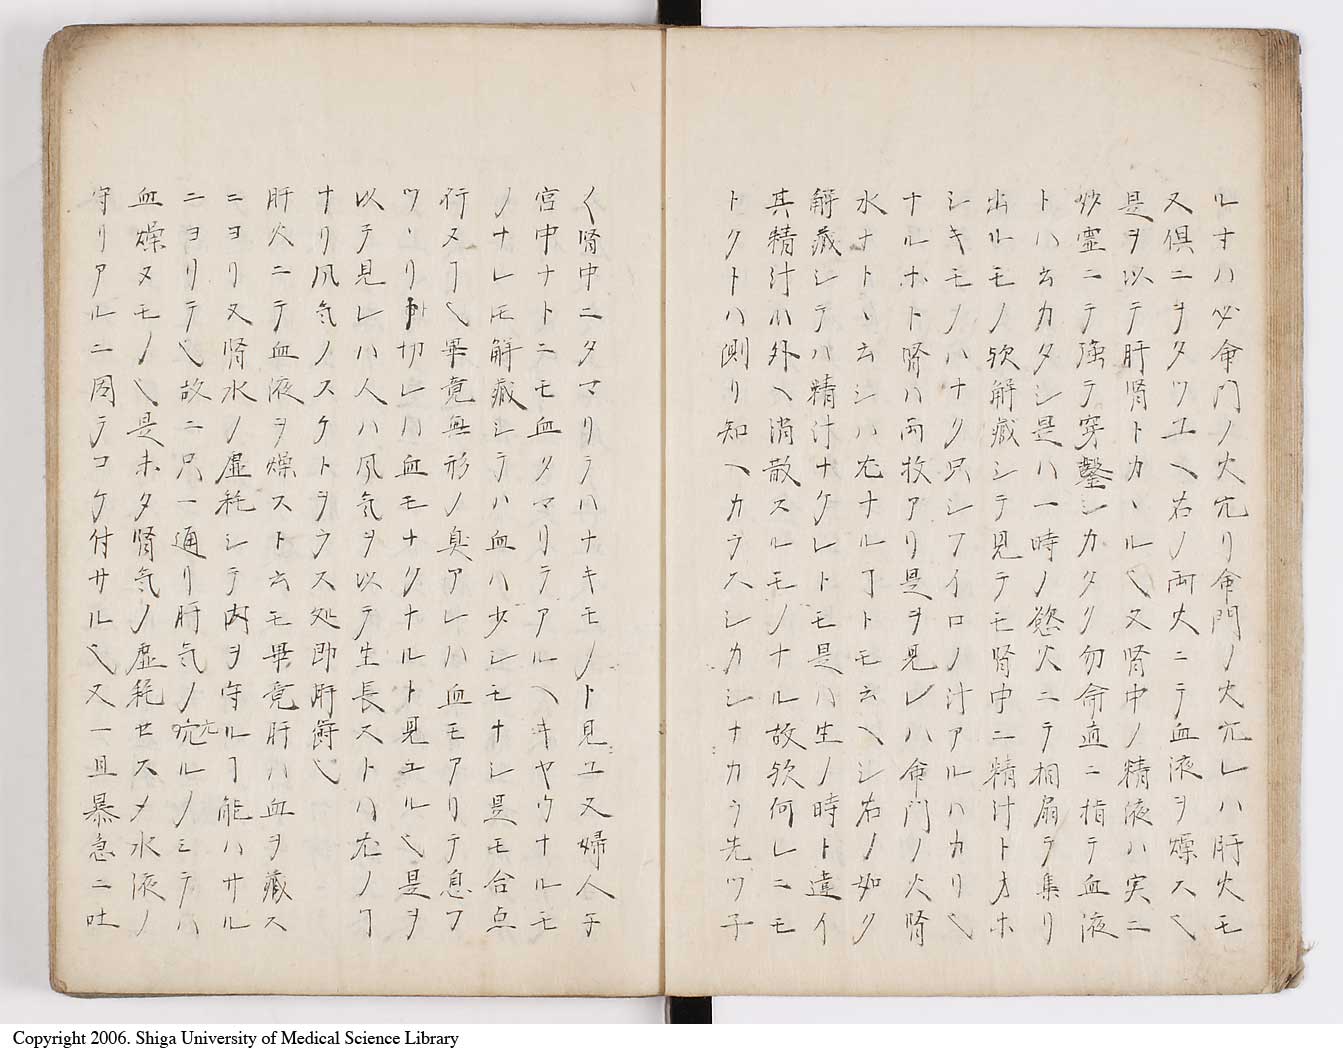 ルオハ必命門ノ火亢リ命門ノ火亢レハ肝火モ
又倶ニヲタツユヘ右ノ両火ニテ血液ヲ燥スヘ
是ヲ以テ肝腎トカヽルヘ又腎中ノ精液ハ実ニ
妙霊ニテ強テ穿鑿シカタク勿命直ニ指テ血液
トハ云カタシ是ハ一時ノ慾火ニテ相扇テ集リ
出ルモノ欤解蔵シテ見テモ腎中ニ精汁トオホ
シキモノハナク只シフイロノ汁アルハカリヘ
ナルホト腎ハ両枚アリ是ヲ見レハ命門ノ火腎
水ナトヽ云シハ尤ナルヿトモ云ヘシ右ノ如ク
解蔵シテハ精汁ナケレトモ是ハ生ノ時ト違イ
其精汁ハ外ヘ消散スルモノナル故欤何レニモ
トクトハ測リ知ヘカラスシカシナカラ先ツ子
く腎中ニタマリテハナキモノト見ユ又婦人子
宮中ナトニモ血タマリテアルヘキヤウナルモ
ノナレ𪜈解蔵シテハ血ハ少シモナシ是モ合点
行ヌヿヘ畢竟無形ノ臭アレハ血モアリテ息フ
ツヽリト切レハ血モナクナルト見ユルヘ是ヲ
以テ見レハ人ハ風気ヲ以テ生長ストハ尤ノヿ
ナリ風気ノスケトヲウス処即肝臓ヘ
肝火ニテ血液ヲ燥スト云モ畢竟肝ハ血ヲ蔵ス
ニヨリ又腎水ノ虚耗シテ内ヲ守ルヿ能ハサル
ニヨリテヘ故ニ只一通リ肝気ノ亢ルノミテハ
血燥ヌモノヘ是未タ腎気ノ虚耗セスメ水液ノ
守リアルニ因テコケ付サルヘ又一旦暴急ニ吐
Copyright 2006. Shiga University of Medical Science Library